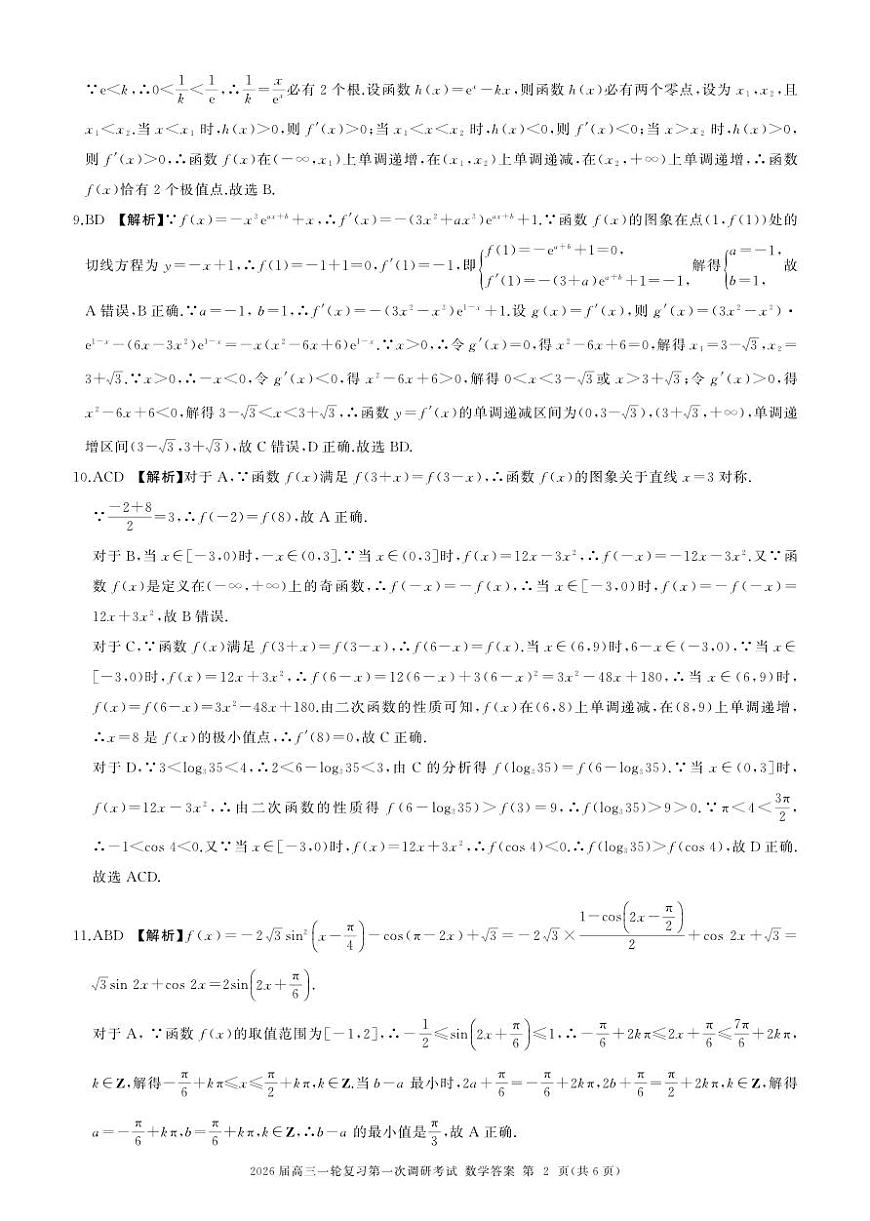 ∵e<k,∴0<1/k<1/e,∴1/k=x/eˣ必有 2 个根.设函数 h(x)=eˣ-kx,则函数 h(x)必有两个零点,设为 x₁,x₂,且
x₁<x₂.当 x<x₁ 时,h(x)>0,则 f′(x)>0;当 x₁<x<x₂ 时,h(x)<0,则 f′(x)<0;当 x>x₂ 时,h(x)>0,
则 f′(x)>0,∴函数 f(x)在(-∞,x₁)上单调递增,在(x₁,x₂)上单调递减,在(x₂,+∞)上单调递增,∴函数
f(x)恰有 2 个极值点.故选 B.
9.BD 【解析】∵f(x)=-x³e^(ax+b)+x,∴f′(x)=-(3x²+ax³)e^(ax+b)+1.∵函数 f(x)的图象在点(1,f(1))处的
切线方程为 y=-x+1,∴f(1)=-1+1=0,f′(1)=-1,即{f(1)=-e^(a+b)+1=0, f′(1)=-(3+a)e^(a+b)+1=-1, 解得{a=-1, b=1, 故
A 错误,B 正确.∵a=-1, b=1,∴f′(x)=-(3x²-x³)e^(1-x)+1.设 g(x)=f′(x),则 g′(x)=(3x²-x³)·
e^(1-x)-(6x-3x²)e^(1-x)=-x(x²-6x+6)e^(1-x).∵x>0,∴令 g′(x)=0,得 x²-6x+6=0,解得 x₁=3-√3,x₂=
3+√3.∵x>0,∴-x<0,令 g′(x)<0,得 x²-6x+6>0,解得 0<x<3-√3或 x>3+√3;令 g′(x)>0,得
x²-6x+6<0,解得 3-√3<x<3+√3,∴函数 y=f′(x)的单调递减区间为(0,3-√3),(3+√3,+∞),单调递
增区间(3-√3,3+√3),故 C 错误,D 正确.故选 BD.
10.ACD 【解析】对于 A,∵函数 f(x)满足 f(3+x)=f(3-x),∴函数 f(x)的图象关于直线 x=3 对称.
∵(-2+8)/2=3,∴f(-2)=f(8),故 A 正确.
对于 B,当 x∈[-3,0)时,-x∈(0,3].∵当 x∈(0,3]时,f(x)=12x-3x²,∴f(-x)=-12x-3x².又∵函
数 f(x)是定义在(-∞,+∞)上的奇函数,∴f(-x)=-f(x),∴当 x∈[-3,0)时,f(x)=-f(-x)=
12x+3x²,故 B 错误.
对于 C,∵函数 f(x)满足 f(3+x)=f(3-x),∴f(6-x)=f(x).当 x∈(6,9)时,6-x∈(-3,0),∵当 x∈
[-3,0)时,f(x)=12x+3x²,∴f(6-x)=12(6-x)+3(6-x)²=3x²-48x+180,∴当 x∈(6,9)时,
f(x)=f(6-x)=3x²-48x+180.由二次函数的性质可知,f(x)在(6,8)上单调递减,在(8,9)上单调递增,
∴x=8 是 f(x)的极小值点,∴f′(8)=0,故 C 正确.
对于 D,∵3<log₃35<4,∴2<6-log₃35<3,由 C 的分析得 f(log₃35)=f(6-log₃35).∵当 x∈(0,3]时,
f(x)=12x-3x²,∴由二次函数的性质得 f(6-log₃35)>f(3)=9,∴f(log₃35)>9>0.∵π<4<3π/2,
∴-1<cos 4<0.又∵当 x∈[-3,0)时,f(x)=12x+3x²,∴f(cos 4)<0.∴f(log₃35)>f(cos 4),故 D 正确.
故选 ACD.
11.ABD 【解析】f(x)=-2√3 sin²(x-π/4)-cos(π-2x)+√3=-2√3×(1-cos(2x-π/2))/2+cos 2x+√3=
√3sin 2x+cos 2x=2sin(2x+π/6).
对于 A, ∵函数 f(x)的取值范围为[-1,2],∴-1/2≤sin(2x+π/6)≤1,∴-π/6+2kπ≤2x+π/6≤7π/6+2kπ,
k∈Z,解得-π/6+kπ≤x≤π/2+kπ,k∈Z.当 b-a 最小时,2a+π/6=-π/6+2kπ,2b+π/6=π/2+2kπ,k∈Z,解得
a=-π/6+kπ,b=π/6+kπ,k∈Z,∴b-a 的最小值是π/3,故 A 正确.
2026 届高三一轮复习第一次调研考试 数学答案 第 2 页(共 6 页)